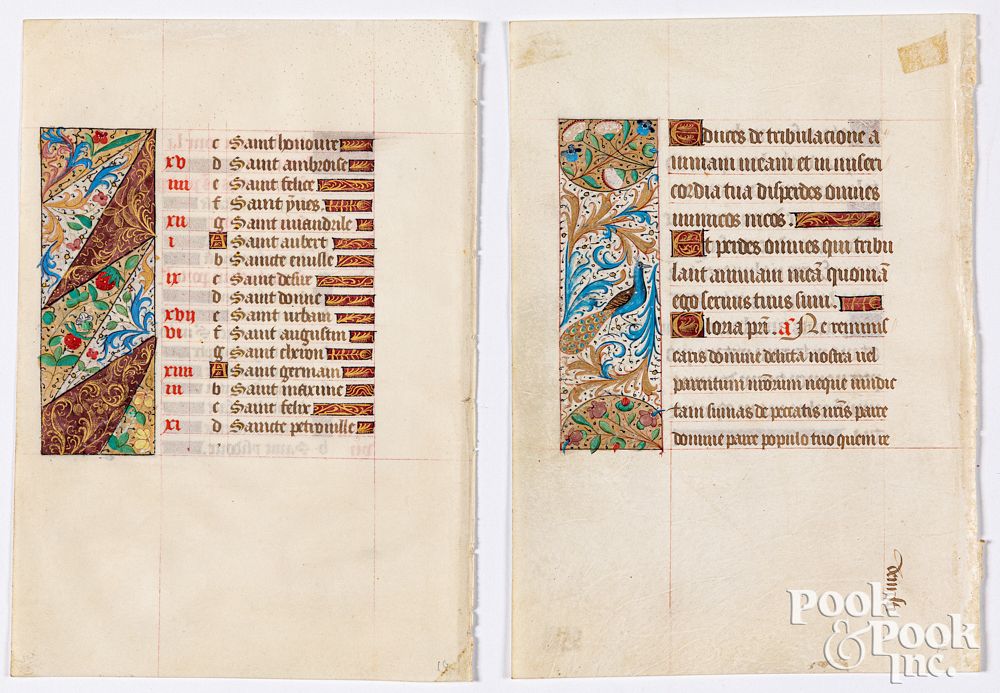 c Saint honoure
xv d Saint ambroise
iiii e Saint felice
f Saint yves
xii g Saint mandrile
i A Saint aubert
b Saincte emille
ix c Saint desire
d Saint donne
xvij e Saint urbain
vi f Saint augustin
g Saint eleron
xiiii A Saint germain
iii b Saint maxime
c Saint felix
xi d Saincte petronille
Educes de tribulacione a
nimam meam et in miseri
cordia tua disperdes omnes
inimicos meos
Et perdes omnes qui tribu
lant animam meā quoniā
ego servus tuus sum.
Gloria pri. a Ne reminis
caris domine delicta nostra vel
parentum nrorum neque vindic
tam sumas de peccatis nris parce
domine parce populo tuo quem re
Pook
& Pook
inc.